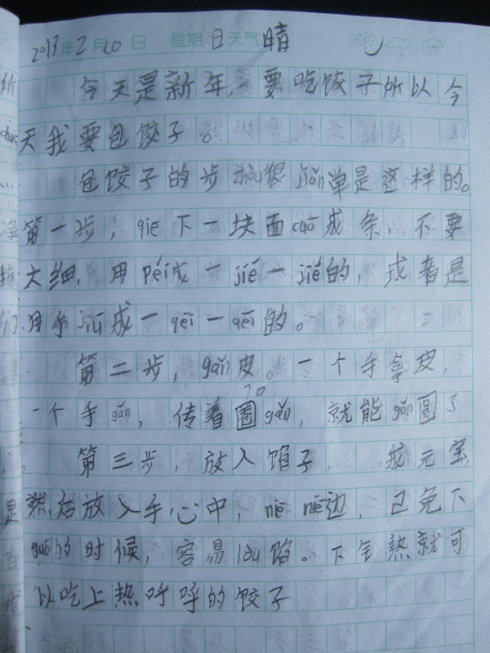 2013年2月10日 星期日天气晴
今天是新年,要吃饺子所以今
天我要包饺子。
包饺子的步就很jiǎn单是这样的。
第一步,qiē下一块面cuō成条,不要
太细,用péi成一jié一jié的,或者是
用手jiū成一qēi一qēi的。
第二步,gǎn皮。一个手拿皮,
一个手gǎn,传着圈gǎn,就能gǎn圆了
第三步,放入馅子, 成元宝
然后放入手心中,niē niē边,已免下
guō的时候,容易lòu馅。下全熟就可
以吃上热呼呼的饺子